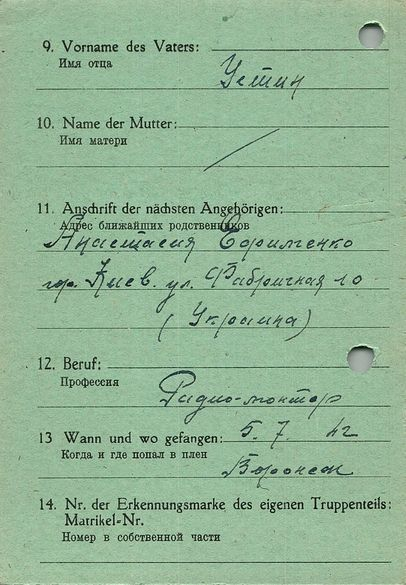 9. Vorname des Vaters:
Имя отца
Устин
10. Name der Mutter:
Имя матери
11. Anschrift der nächsten Angehörigen:
Адрес ближайших родственников
Анастасия
гор. Киев. ул. Фабричная 10
(Украина)
12. Beruf:
Профессия
Радио-монтор
13 Wann und wo gefangen: 5. 7. 42
Когда и где попал в плен
Воронеж
14. Nr. der Erkennungsmarke des eigenen Truppenteils:
Matrikel-Nr.
Номер в собственной части